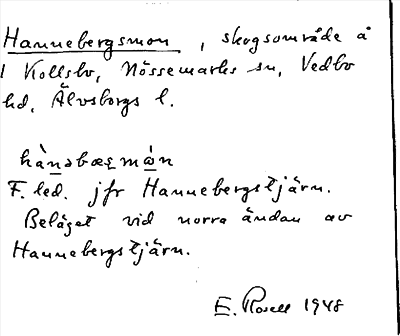 Hannebergsmon, skogsområde å
1 Kollsbo, Nössemarks sn, Vedbo
hd, Älvsborgs l.
hànəbæʂmån
F. led. jfr Hannebergstjärn.
Beläget vid norra ändan av
Hannebergstjärn.
E. Rosell 1948